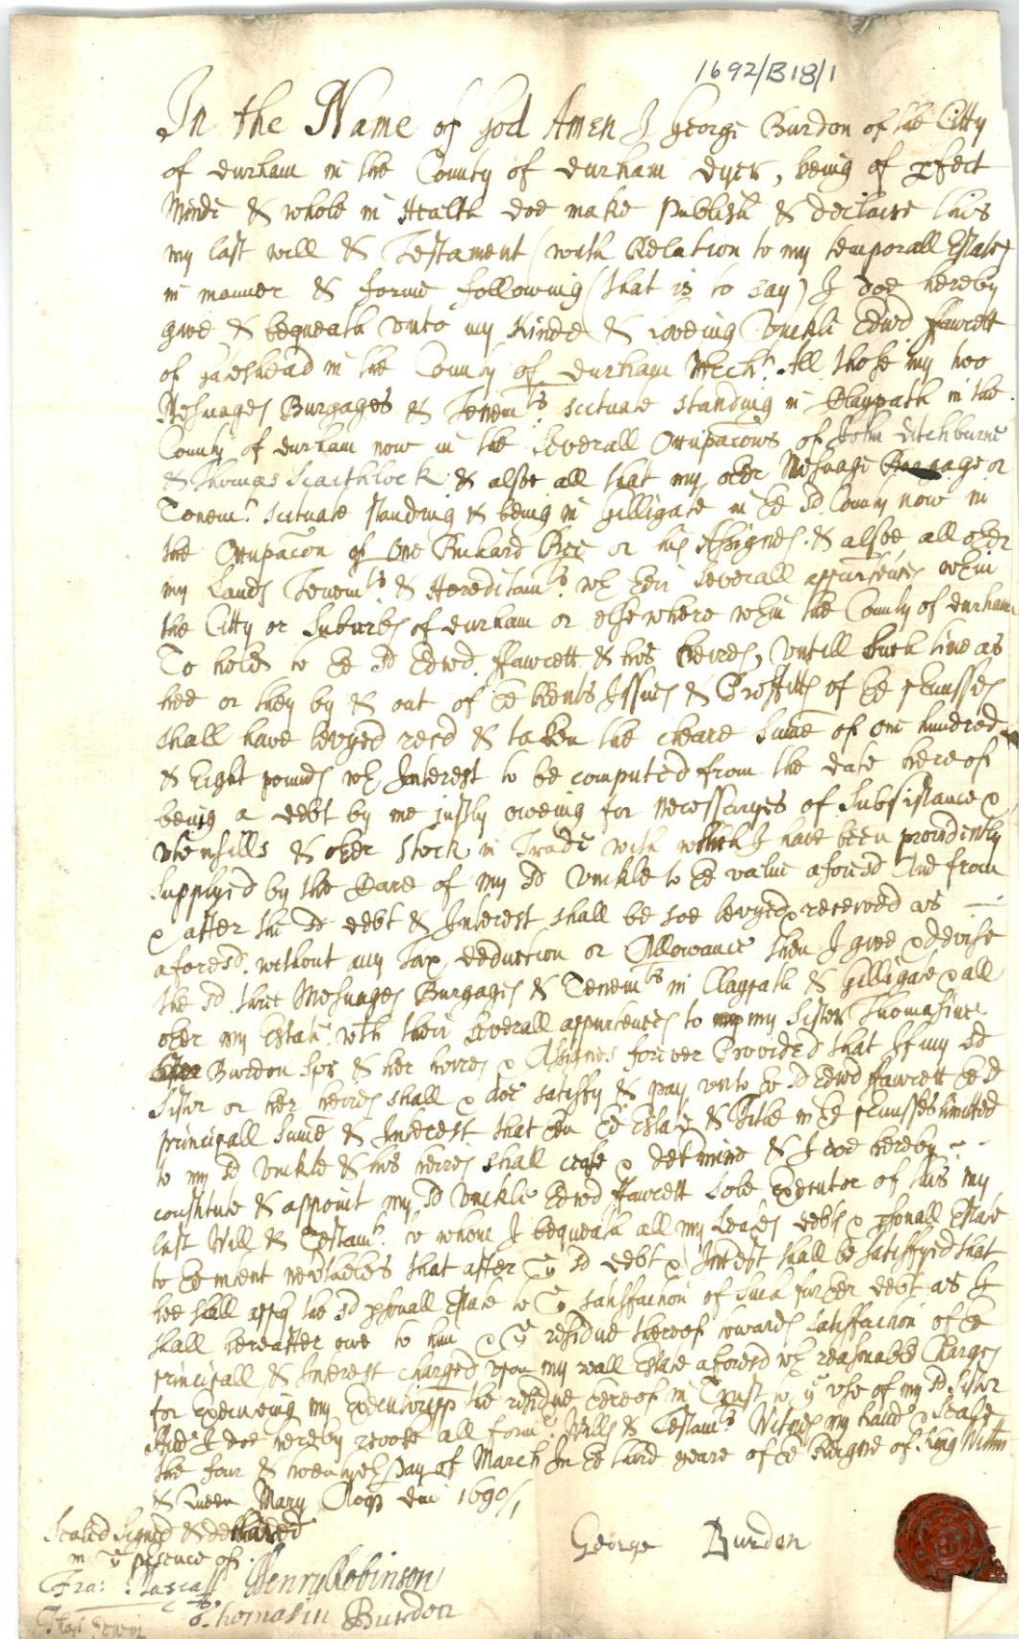 1692/B18/1
In the Name of God Amen I George Burdon of the Citty
of Durham in the County of Durham Dyer, being of pfect
Minde & whole in Health doe make publish & declaire this
my last will & Testament (with Relation to my temporall Estate)
in manner & forme following (that is to say) I doe hereby
give & bequeath unto my Kinde & loveing Unckle Edwd ffawcett
of Gateshead in the County of Durham All those my two
Messuages Burgages & Tenemts scituate standing in Claypath in the
County of Durham now in the severall Occupacons of John Litchburne
& Thomas Scarthlock & alsoe all that my oer Messuage Burgage or
Tenemt scituate standing & being in Gilligate in ye sd County now in
the Occupacon of One Richard or his Assignes & alsoe all oer
my Lands Tenemts & Hereditamts wth their severall appurtences wthin
the Citty or Suburbs of Durham or elsewhere wthin the County of Durham
To hold to ye sd Edwd ffawcett & his heires, Untill such time as
hee or they by & out of ye Rents Issues & Proffitts of ye pmisses
shall have levyed recd & taken the cleare Sume of one hundred
& Eight pounds wth Interest to be computed from the date hereof
being a debt by me justly oweing for Necessaryes of Subsistance &
utensills & oer Stock in Trade with which I have been providently
supplyed by the Care of my sd Unckle to ye value aforesd And from
& after the sd debt & Interest shall be soe levyed & received as
aforesd without any Tax deduction or Allowance then I give & devise
the sd three Messuages Burgages & Tenemts in Claypath & Gilligate & all
oer my Estate wth their severall appurtences to my Sister Thomasine
Burdon Spr & her heires & Assignes forever Provided that If my sd
Sister or her heires shall & doe satisfy & pay unto ye sd Edwd ffawcett ye sd
principall Sume & Interest that then ye Estate & Title in ye pmisses limitted
to my sd Unckle & his heires shall cease & determine & I doe hereby
constitute & appoint my sd Unckle Edwd ffawcett Sole Executor of this my
last Will & Testamt to whom I bequeath all my Goods debts & psonall Estate
to ye intent nevertheles that after ye sd debt & Interest shall be satisfyed that
hee shall apply the sd psonall Estate to ye satisfaction of such further debt as I
shall hereafter owe to him & ye residue thereof towards satisfaction of ye
principall & Interest charged upon my reall Estate aforesd wth reasonable Charges
for executing my Executorspp the residue thereof in Trust to ye use of my sd Sister
And I doe hereby revoke all formr Wills & Testamts Witnes my hand & Seale
the four & twentyeth Day of March In ye third yeare of ye Reigne of King Willm
& Queen Mary Anoq Dni 1690/1
Sealed Signed & delivered
in ye presence of
George Burdon
Henry Robinson
Thomasin Burdon